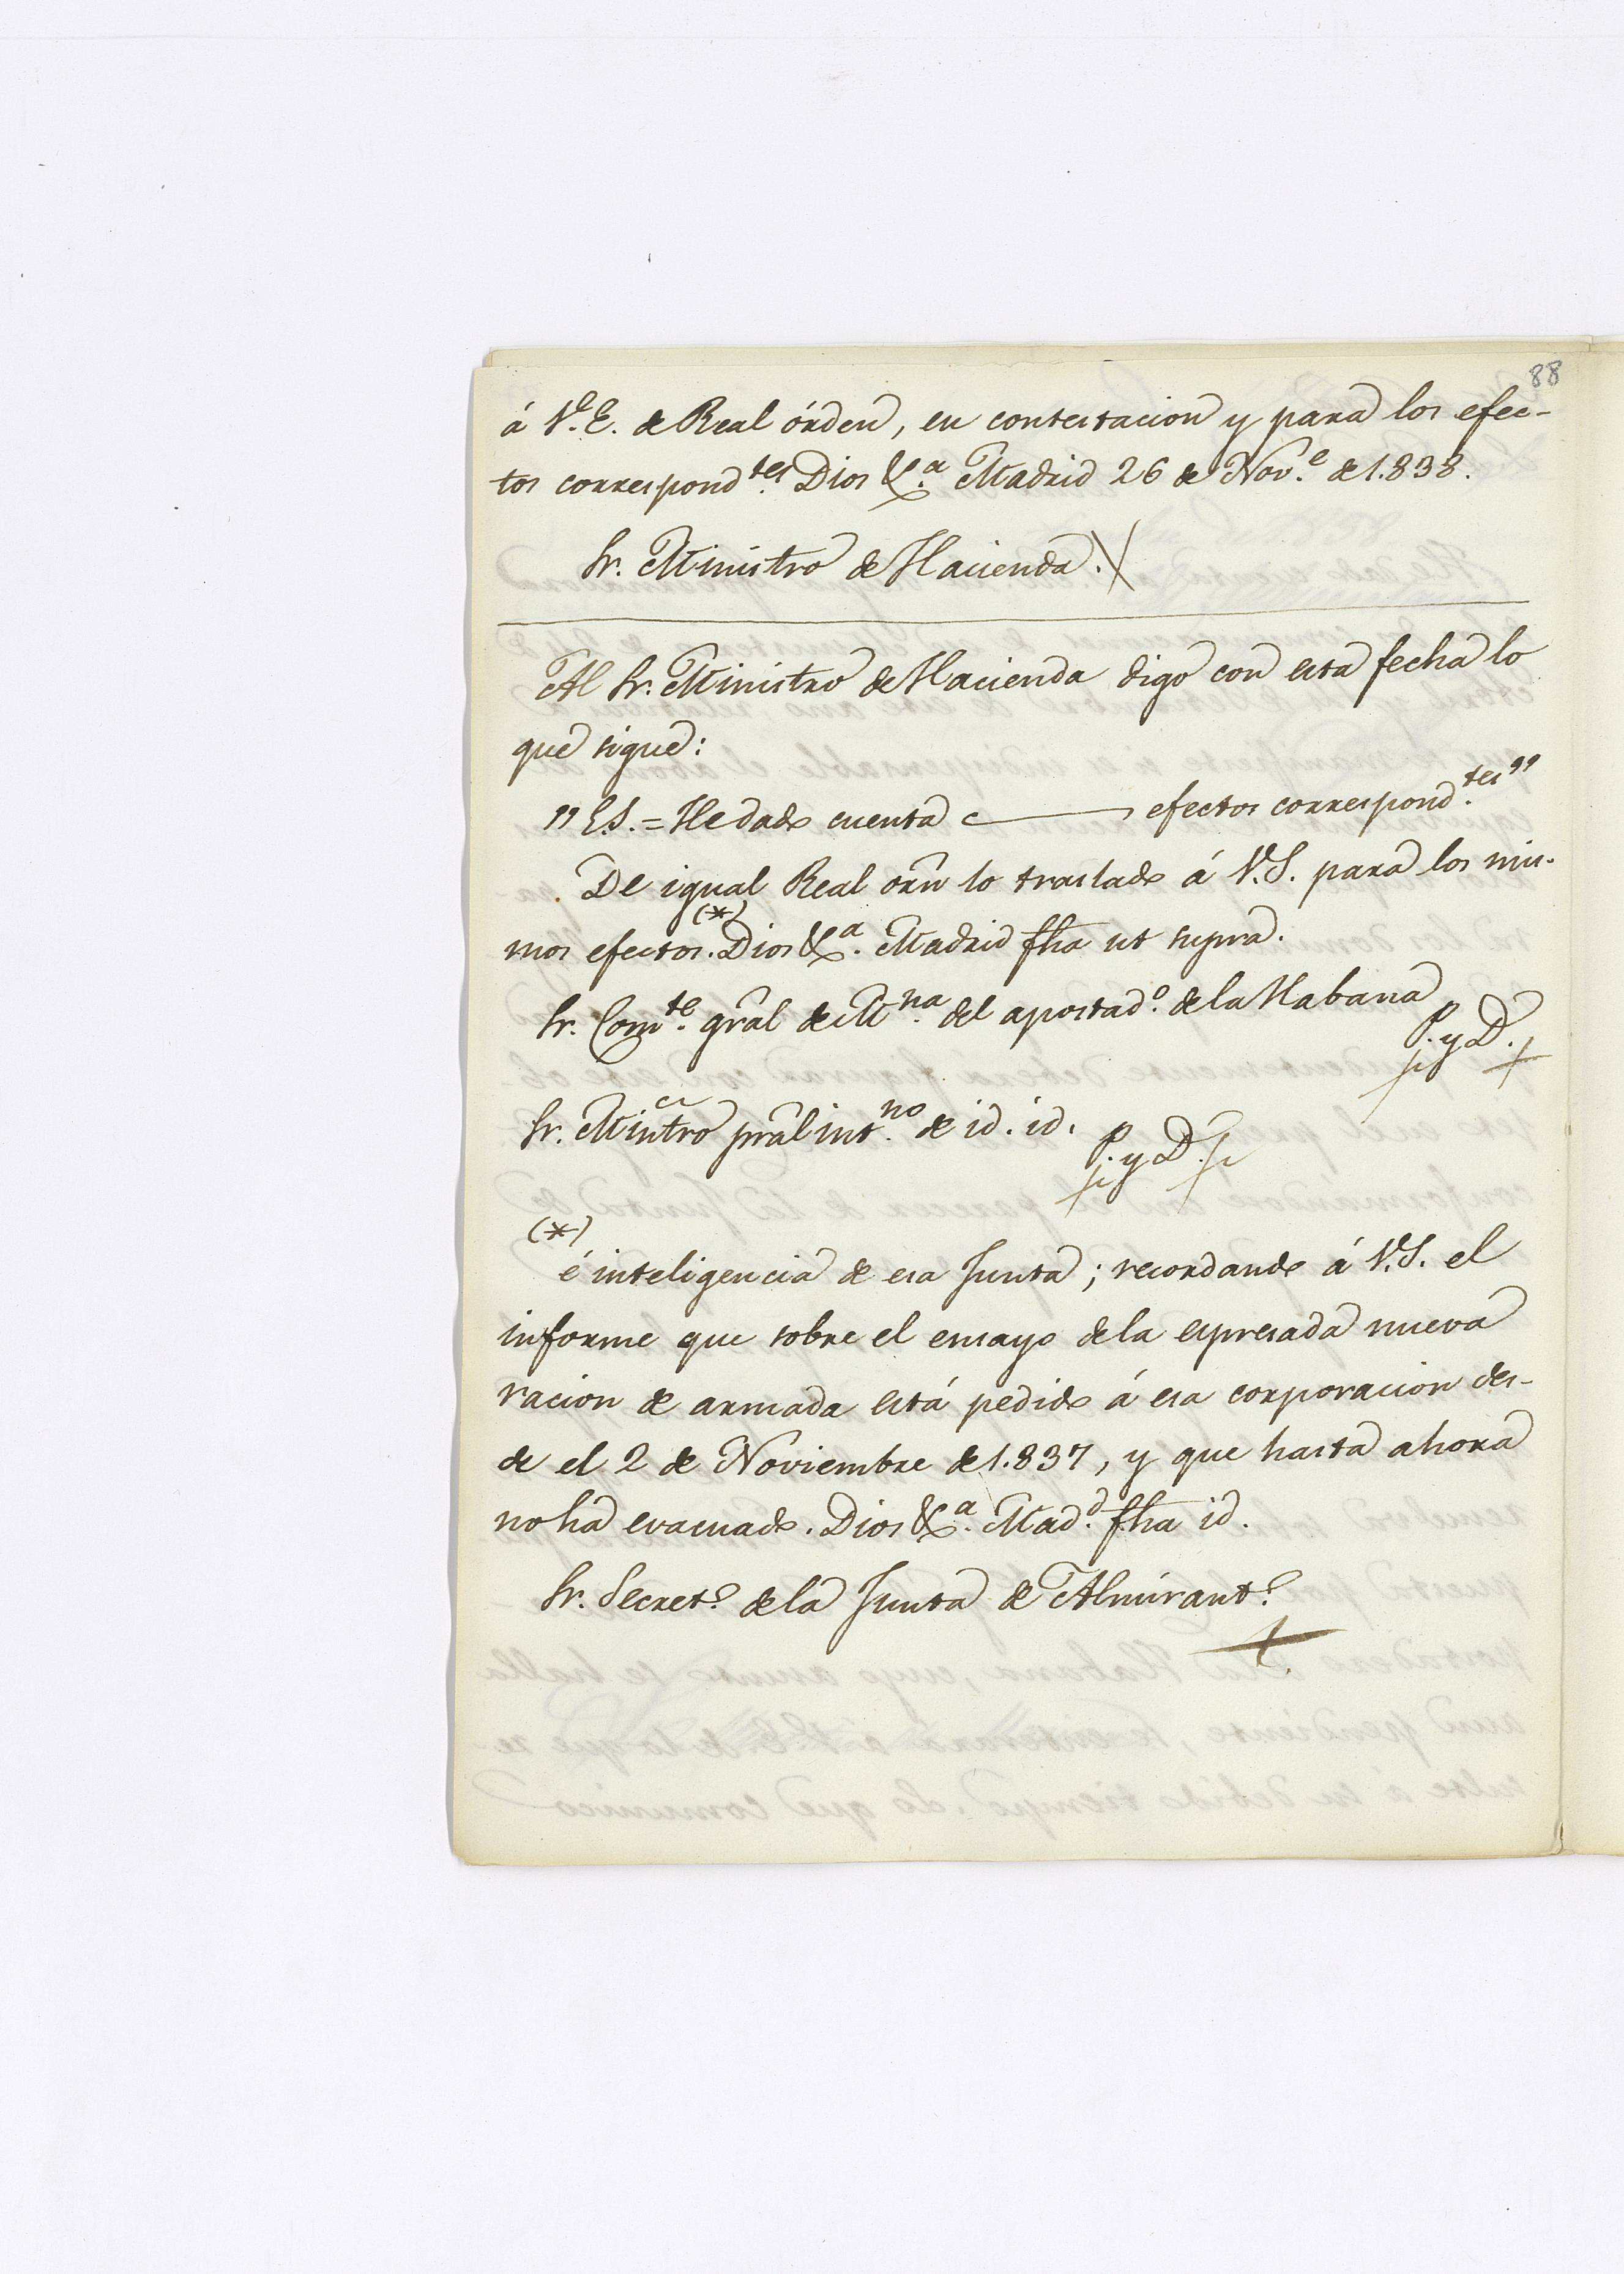 88
á V.E. de Real órden, en contestacion y para los efec-
tos correspond.tes Dios &.a Madrid 26 de Nov.e de 1.838.
Sr. Ministro de Hacienda.
Al Sr. Ministro de Hacienda digo con esta fecha lo
que sigue:
"E.S. = He dado cuenta —— efectos correspond.tes"
De igual Real orn lo traslado á V.S. para los mis-
(*)
mos efectos. Dios &.a Madrid fha ut supra.
Sr. Com.te gral de M.na del apostad.o de la Habana
P. y D.
Sr. Mintro pral int.no de id. id.
P. y D.
(*)
é inteligencia de esa Junta; recordando á V.S. el
informe que sobre el ensayo de la espresada nueva
racion de armada está pedido á esa corporacion des-
de el 2 de Noviembre de 1.837, y que hasta ahora
no ha evacuado. Dios &.a Mad.d fha id.
Sr. Secret.o de la Junta de Almirant.o